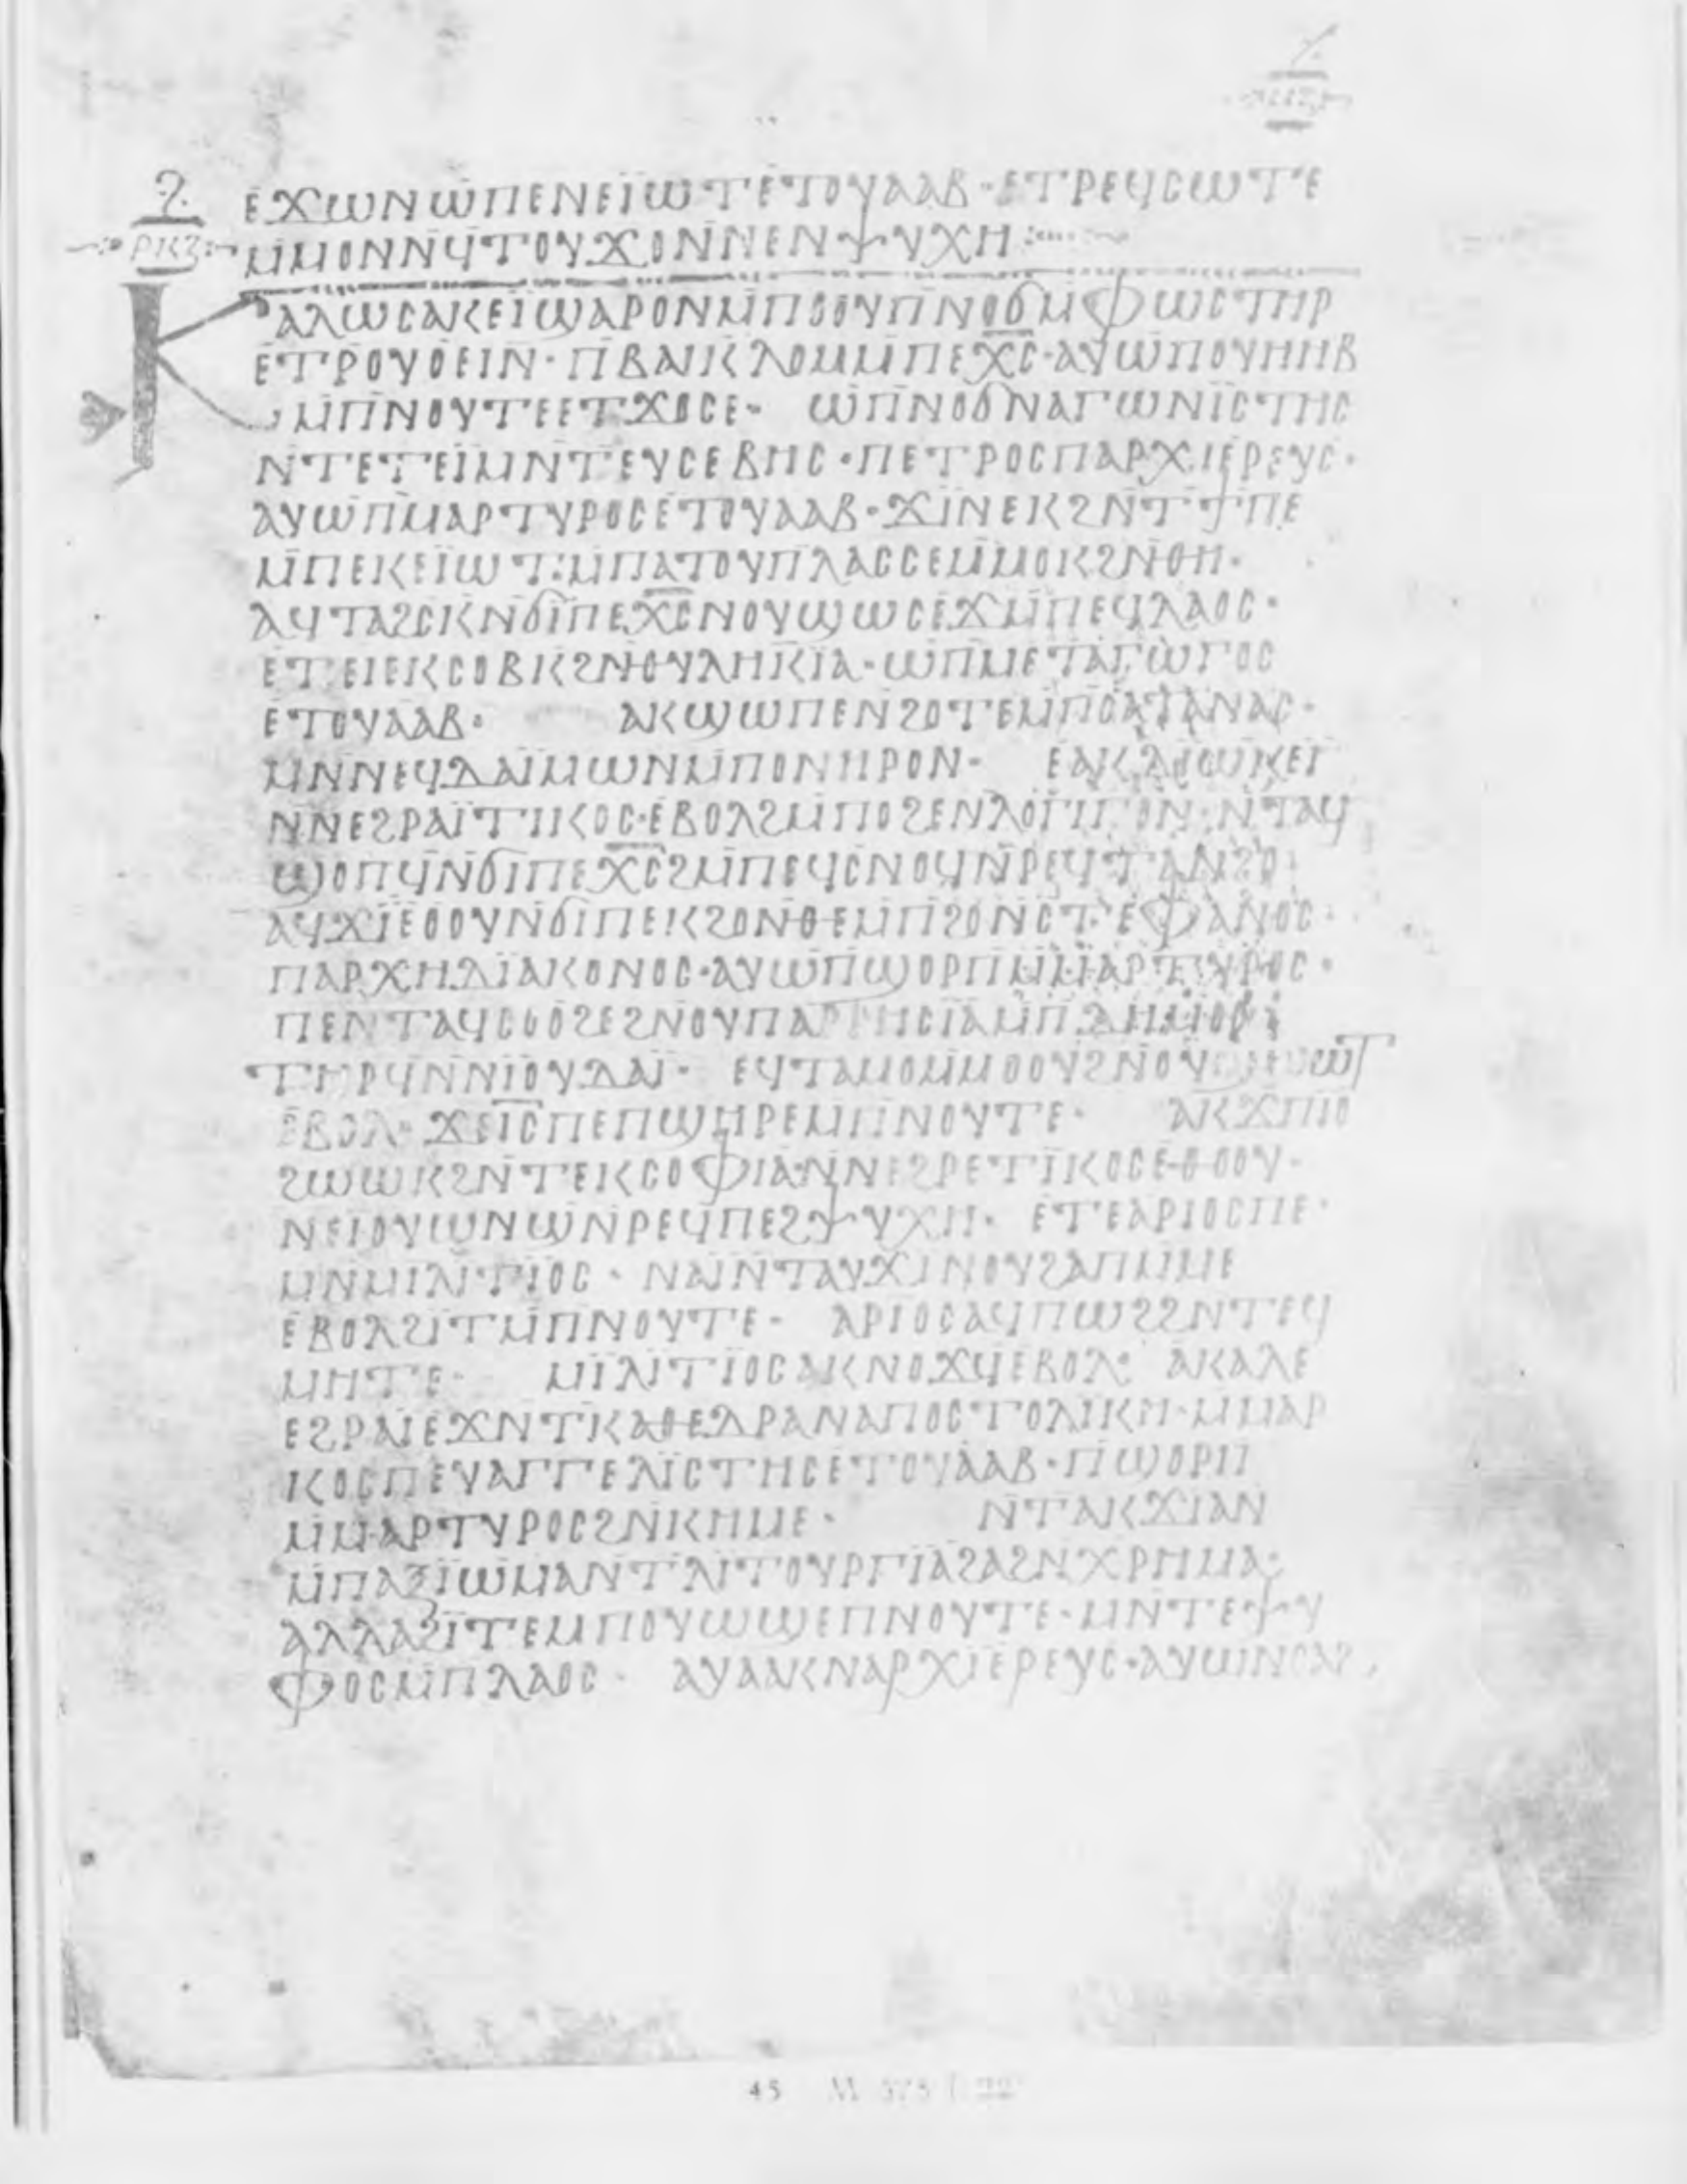 ϩ
ⲣⲕⲍ
ⲉϫⲱⲛ ⲱ̅ⲡⲉⲛⲉⲓ̈ⲱⲧ ⲉⲧⲟⲩⲁⲁⲃ · ⲉⲧⲣⲉϥⲥⲱⲧⲉ
ⲙ̅ⲙⲟⲛ ⲛ̅ϥⲧⲟⲩϫⲟ ⲛ̅ⲛⲉⲛⲯⲩⲭⲏ :
Ⲕⲁⲗⲱⲥ ⲁⲕⲉⲓ̈ ϣⲁⲣⲟⲛ ⲙ̅ⲡⲟⲟⲩ ⲡⲛⲟϭ ⲙ̅ⲫⲱⲥⲧⲏⲣ
ⲉⲧⲣⲟⲩⲟⲉⲓⲛ · ⲡⲃⲁⲓⲕⲗⲟⲙ ⲙ̅ⲡⲉⲭ̅ⲥ̅ · ⲁⲩⲱ ⲡⲟⲩⲏⲏⲃ
ⲙ̅ⲡⲛⲟⲩⲧⲉ ⲉⲧϫⲟⲥⲉ · ⲱ̅ ⲡⲛⲟϭ ⲛⲁⲅⲱⲛⲓ̈ⲥⲧⲏⲥ
ⲛ̅ⲧⲉⲧⲉⲓ̈ⲙⲛ̅ⲧⲉⲩⲥⲉⲃⲏⲥ · ⲡⲉⲧⲣⲟⲥ ⲡⲁⲣⲭⲓⲉⲣⲉⲩⲥ ·
ⲁⲩⲱ ⲡ̅ⲙⲁⲣⲧⲩⲣⲟⲥ ⲉⲧⲟⲩⲁⲁⲃ · ϫⲓⲛ ⲉⲕϩⲛ̅ ⲧϯⲡⲉ
ⲙ̅ⲡⲉⲕⲉⲓ̈ⲱⲧ : ⲙ̅ⲡⲁⲧⲟⲩⲡⲗⲁⲥⲥⲉ ⲙ̅ⲙⲟⲕ ϩⲛ̅ ⲑⲏ ·
ⲁϥⲧⲁϩⲥⲕ ⲛ̅ϭⲓ ⲡⲉⲭ̅ⲥ̅ ⲛⲟⲩϣⲱⲥ ⲉϫⲙ̅ ⲡⲉϥⲗⲁⲟⲥ ·
ⲉⲧⲉⲓ ⲉⲕⲥⲟⲃⲕ ϩⲛ̅ ⲑⲩⲗⲏⲕⲓⲁ · ⲱ̅ ⲡⲙⲉⲧⲁⲅⲱⲅⲟⲥ
ⲉⲧⲟⲩⲁⲁⲃ · ⲁⲕϣⲱⲡⲉ ⲛϩⲟⲧⲉ ⲙ̅ⲡⲥⲁⲧⲁⲛⲁⲥ ·
ⲙⲛ̅ ⲛⲉϥⲇⲁⲓ̈ⲙⲱⲛ ⲙ̅ⲡⲟⲛⲏⲣⲟⲛ · ⲉⲁⲕⲇⲓⲱⲕⲉⲓ
ⲛ̅ⲛⲉϩⲣⲁⲓ̈ⲧⲓⲕⲟⲥ · ⲉⲃⲟⲗ ϩⲙ̅ ⲡⲟϩⲉ ⲛⲗⲟⲅⲓⲅⲟⲛ · ⲛ̅ⲧⲁϥ
ϣⲟⲡϥ ⲛ̅ϭⲓ ⲡⲉⲭ̅ⲥ̅ ϩⲙ̅ ⲡⲉϥⲥⲛⲟϥ ⲛ̅ⲣⲉϥⲧⲁⲛϩⲟ
ⲁϥϫⲓ ⲉⲟⲟⲩ ⲛ̅ϭⲓ ⲡⲉⲕϩⲟ ⲛⲑⲉ ⲙ̅ⲡϩⲟ ⲛ̅ⲥⲧⲉⲫⲁⲛⲟⲥ ·
ⲡⲁⲣⲭⲏⲇⲓ̈ⲁⲕⲟⲛⲟⲥ · ⲁⲩⲱ ⲡϣⲟⲣⲡ ⲙ̅ⲙⲁⲣⲧⲩⲣⲟⲥ ·
ⲡⲉⲛⲧⲁϥⲥⲟⲟϩⲉ ϩⲛ̅ ⲟⲩⲡⲁⲣⲣⲏⲥⲓⲁ ⲙ̅ⲡⲇⲏⲙⲟⲥ
ⲧⲏⲣϥ ⲛ̅ⲛⲓ̈ⲟⲩⲇⲁⲓ̈ · ⲉϥⲧⲁⲙⲟ ⲙ̅ⲙⲟⲟⲩ ϩⲛ̅ ⲟⲩ
ⲉⲃⲟⲗ · ϫⲉ ⲓ̅ⲥ̅ ⲡⲉ ⲡϣⲏⲣⲉ ⲙ̅ⲡⲛⲟⲩⲧⲉ · ⲁⲕϫⲡⲓⲟ
ϩⲱⲱⲕ ϩⲛ̅ ⲧⲉⲕⲥⲟⲫⲓⲁ · ⲛ̅ⲛⲉϩⲣⲉⲧⲓⲕⲟⲥ ⲉⲑⲟⲟⲩ ·
ⲛⲉⲓⲟⲩⲱⲛϣ ⲛ̅ⲣⲉϥⲡⲉϩⲯⲩⲭⲏ · ⲉⲧⲉ ⲁⲣⲓⲟⲥ ⲡⲉ ·
ⲙⲛ̅ ⲙⲓⲗⲓⲧⲓ̈ⲟⲥ · ⲛⲁⲓ̈ ⲛ̅ⲧⲁⲩϫⲓ ⲛⲟⲩϩⲁⲡ ⲙ̅ⲙⲉ
ⲉⲃⲟⲗ ϩⲓⲧⲙ̅ ⲡⲛⲟⲩⲧⲉ · ⲁⲣⲓⲟⲥ ⲁϥⲡⲱϩ ϩⲛ̅ ⲧⲉϥ
ⲙⲏⲧⲉ · ⲙⲓ̈ⲗⲓⲧⲓ̈ⲟⲥ ⲁⲕⲛⲟϫϥ ⲉⲃⲟⲗ · ⲁⲕⲁⲗⲉ
ⲉϩⲣⲁⲓ̈ ⲉϫⲛ̅ ⲧⲕⲁⲑⲉⲇⲣⲁ ⲛⲁⲡⲟⲥⲧⲟⲗⲓⲕⲏ · ⲙ̅ⲙⲁⲣ
ⲕⲟⲥ ⲡⲉⲩⲁⲅⲅⲉⲗⲓ̈ⲥⲧⲏⲥ ⲉⲧⲟⲩⲁⲁⲃ · ⲡϣⲟⲣⲡ
ⲙ̅ⲙⲁⲣⲧⲩⲣⲟⲥ ϩⲛ̅ ⲕⲏⲙⲉ · ⲛ̅ⲧⲁⲕϫⲓ ⲁⲛ
ⲙ̅ⲡⲁⲝⲓ̈ⲱⲙⲁ ⲛ̅ⲧⲗⲓⲧⲟⲩⲣⲅⲓ̈ⲁ ϩⲁ ϩⲁϩ ⲛ̅ⲭⲣⲏⲙⲁ ·
ⲁⲗⲗⲁ ϩⲓ̈ⲧⲉⲙ ⲡⲟⲩⲱϣ ⲉⲡⲛⲟⲩⲧⲉ · ⲙⲛ̅ ⲧⲉⲯⲩ
ⲫⲟⲥ ⲙ̅ⲡⲗⲁⲟⲥ · ⲁⲩⲁⲁⲕ ⲛⲁⲣⲭⲓⲉⲣⲉⲩⲥ · ⲁⲩⲱ ⲛ̅ⲥⲁϩ
45 M 575 f. 22